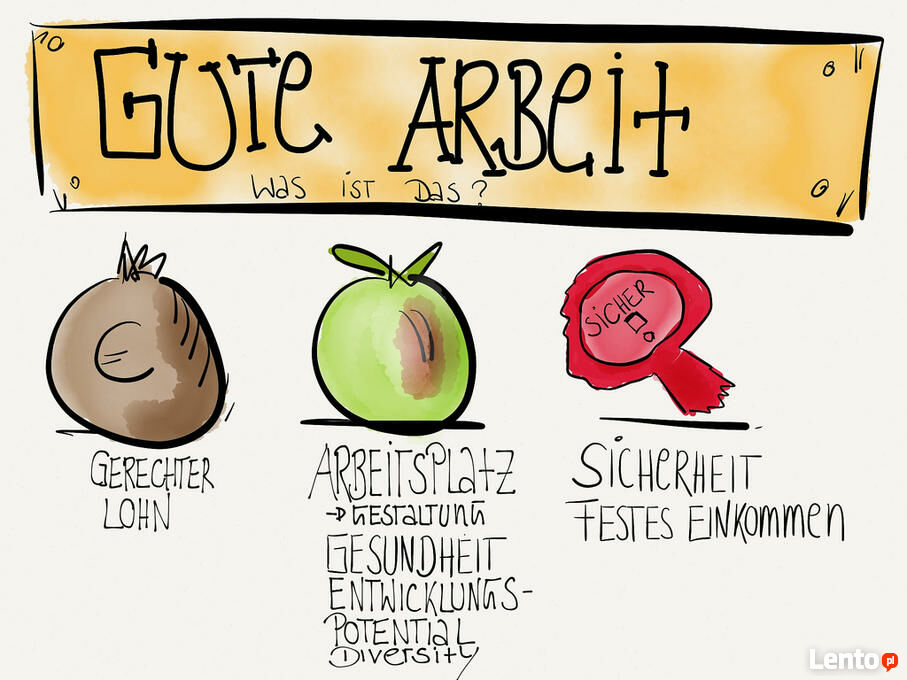 GUTE ARBEIT
Was ist Das?
SICHER
GERECHTER
LOHN
ARBEITSPLATZ
→ GESTALTUNG
GESUNDHEIT
ENTWICKLUNGS-
POTENTIAL
Diversity
SICHERHEIT
FESTES EINKOMMEN
Lento.pl